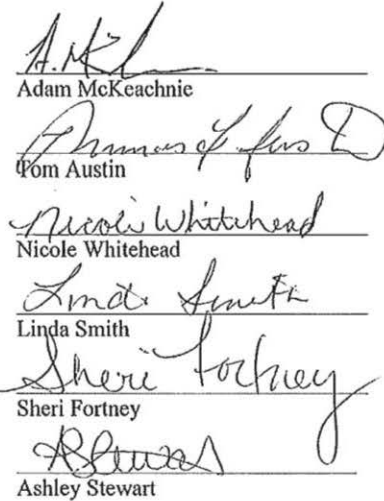 A. McK
Adam McKeachnie
Tom Austin
Nicole Whitehead
Nicole Whitehead
Linda Smith
Linda Smith
Sheri Fortney
Sheri Fortney
AStewart
Ashley Stewart